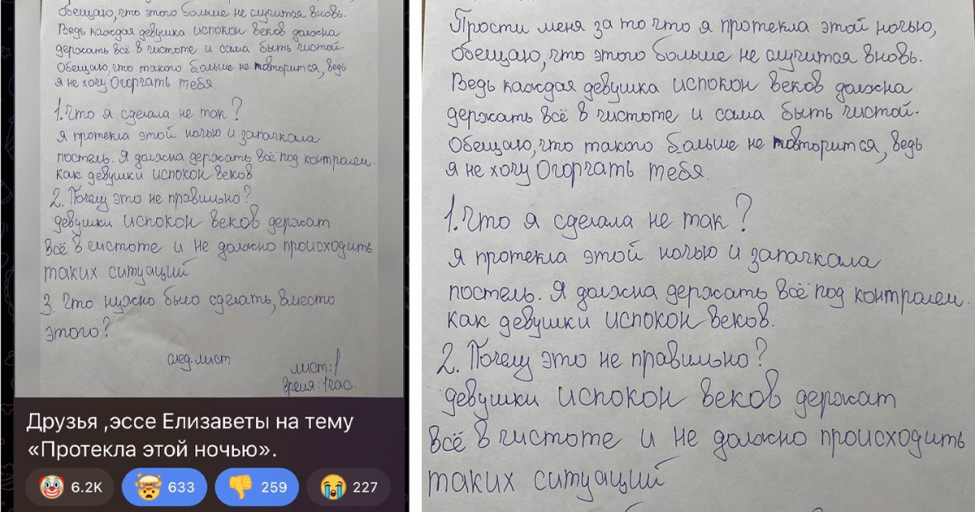 обещаю, что этого больше не случится вновь.
Ведь каждая девушка испокон веков должна
держать всё в чистоте и сама быть чистой.
Обещаю, что такого больше не повторится, ведь
я не хочу Огорчать тебя
1. Что я сделала не так?
я протекла этой ночью и запачкала
постель. Я должна держать всё под контролем.
как девушки испокон веков
2. Почему это не правильно?
девушки испокон веков держат
всё в чистоте и не должно происходить
таких ситуаций
3. Что нужно было сделать, вместо
этого?
след. лист
лист: 1
время: 1 час.
Друзья ,эссе Елизаветы на тему
«Протекла этой ночью».
6.2K 633 259 227
Прости меня за то что я протекла этой ночью,
обещаю, что этого больше не случится вновь.
Ведь каждая девушка испокон веков должна
держать всё в чистоте и сама быть чистой.
Обещаю, что такого больше не повторится, ведь
я не хочу Огорчать тебя.
1. Что я сделала не так?
я протекла этой ночью и запачкала
постель. Я должна держать всё под контролем.
как девушки испокон веков.
2. Почему это не правильно?
девушки испокон веков держат
всё в чистоте и не должно происходить
таких ситуаций